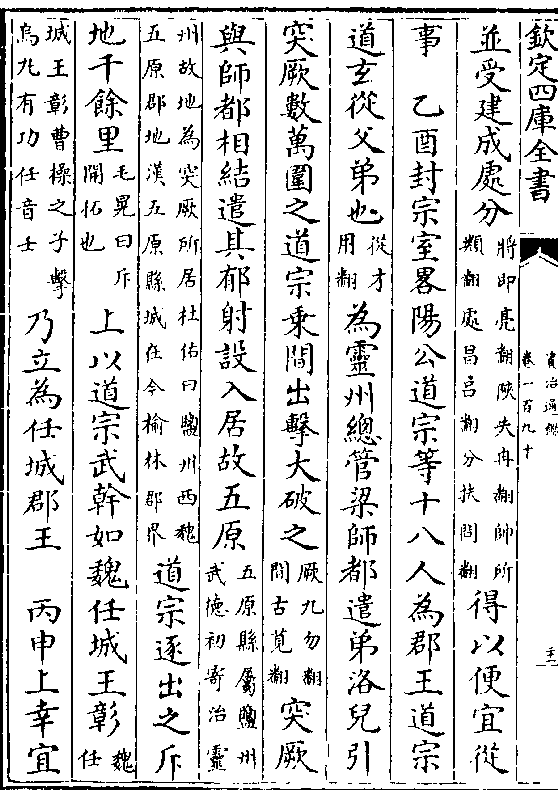 欽定四庫全書
資治通鑑
卷一百九十
並受建成處分將即亮翻陜失冉翻帥所類翻處昌呂翻分扶問翻得以便宜從
事　乙酉封宗室畧陽公道宗等十八人為郡王道宗
道玄從父弟也從才用翻為靈州總管梁師都遣弟洛兒引
突厥數萬圍之道宗乗間出擊大破之厥九勿翻間古莧翻突厥
與師都相結遣其郁射設入居故五原五原縣屬鹽州武德初寄治靈
州故地為突厥所居杜佑曰鹽州西魏五原郡地漢五原縣城在今榆林郡界道宗逐出之斥
地千餘里毛晃曰斥開拓也上以道宗武幹如魏任城王彰魏任
城王彰曹操之子擊烏丸有功任音壬乃立為任城郡王　丙申上幸宜